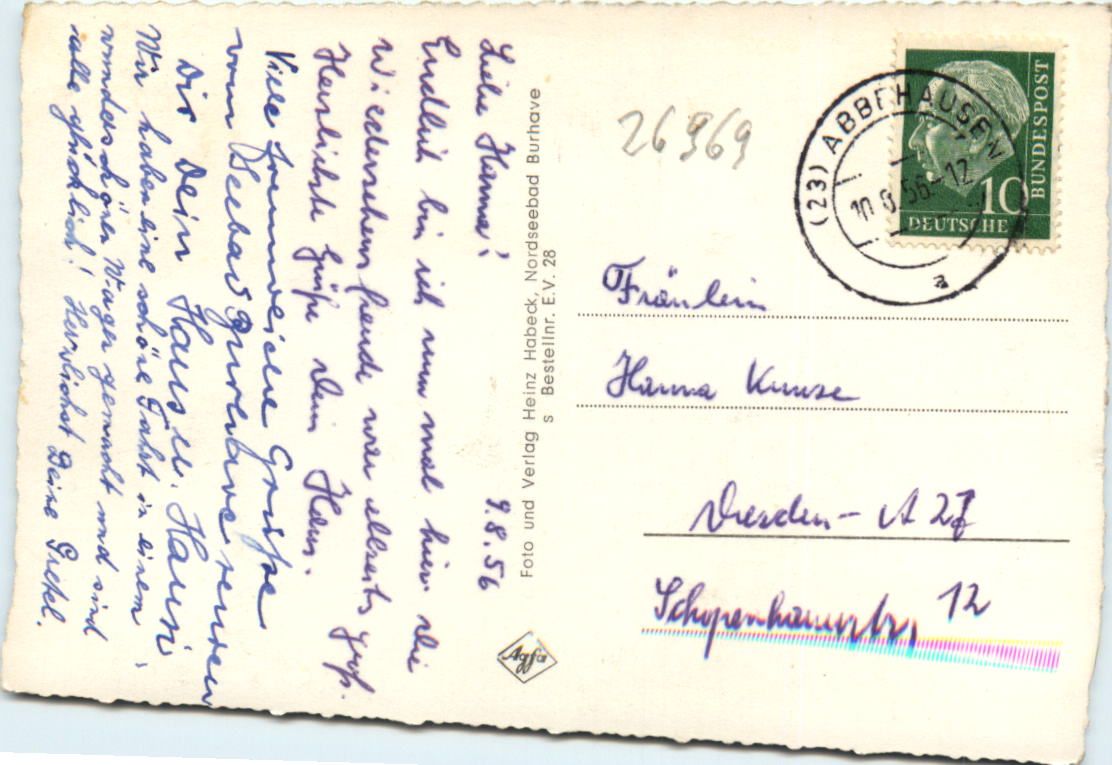 Liebe Hanna!
9.8.56
Endlich bin ich nun mal hier. Die
Wiedersehensfreude war allseits groß.
Herzlichste Grüße Dein Hans.
Viele sonnreiche Grüße
vom Seebad Burhave senden
Dir Dein Hans u. Hanni
Wir haben eine schöne Fahrt in einem
wunderschönen Wagen gemacht und sind
alle glücklich! Herzlichst Deine Gretel.
Foto und Verlag Heinz Habeck, Nordseebad Burhave
s Bestellnr. E.V. 28
Agfa
26969
(23) ABBEHAUSEN
10.8.56-12
a
10
DEUTSCHE
BUNDESPOST
Fräulein
Hanna Kunze
Dresden - A 27
Schopenhauerstr. 12